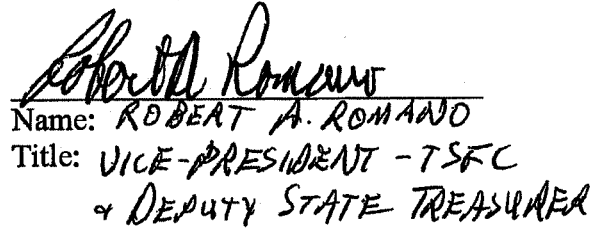 Robert A Romano
Name: ROBERT A. ROMANO
Title: VICE-PRESIDENT - TSFC
& DEPUTY STATE TREASURER